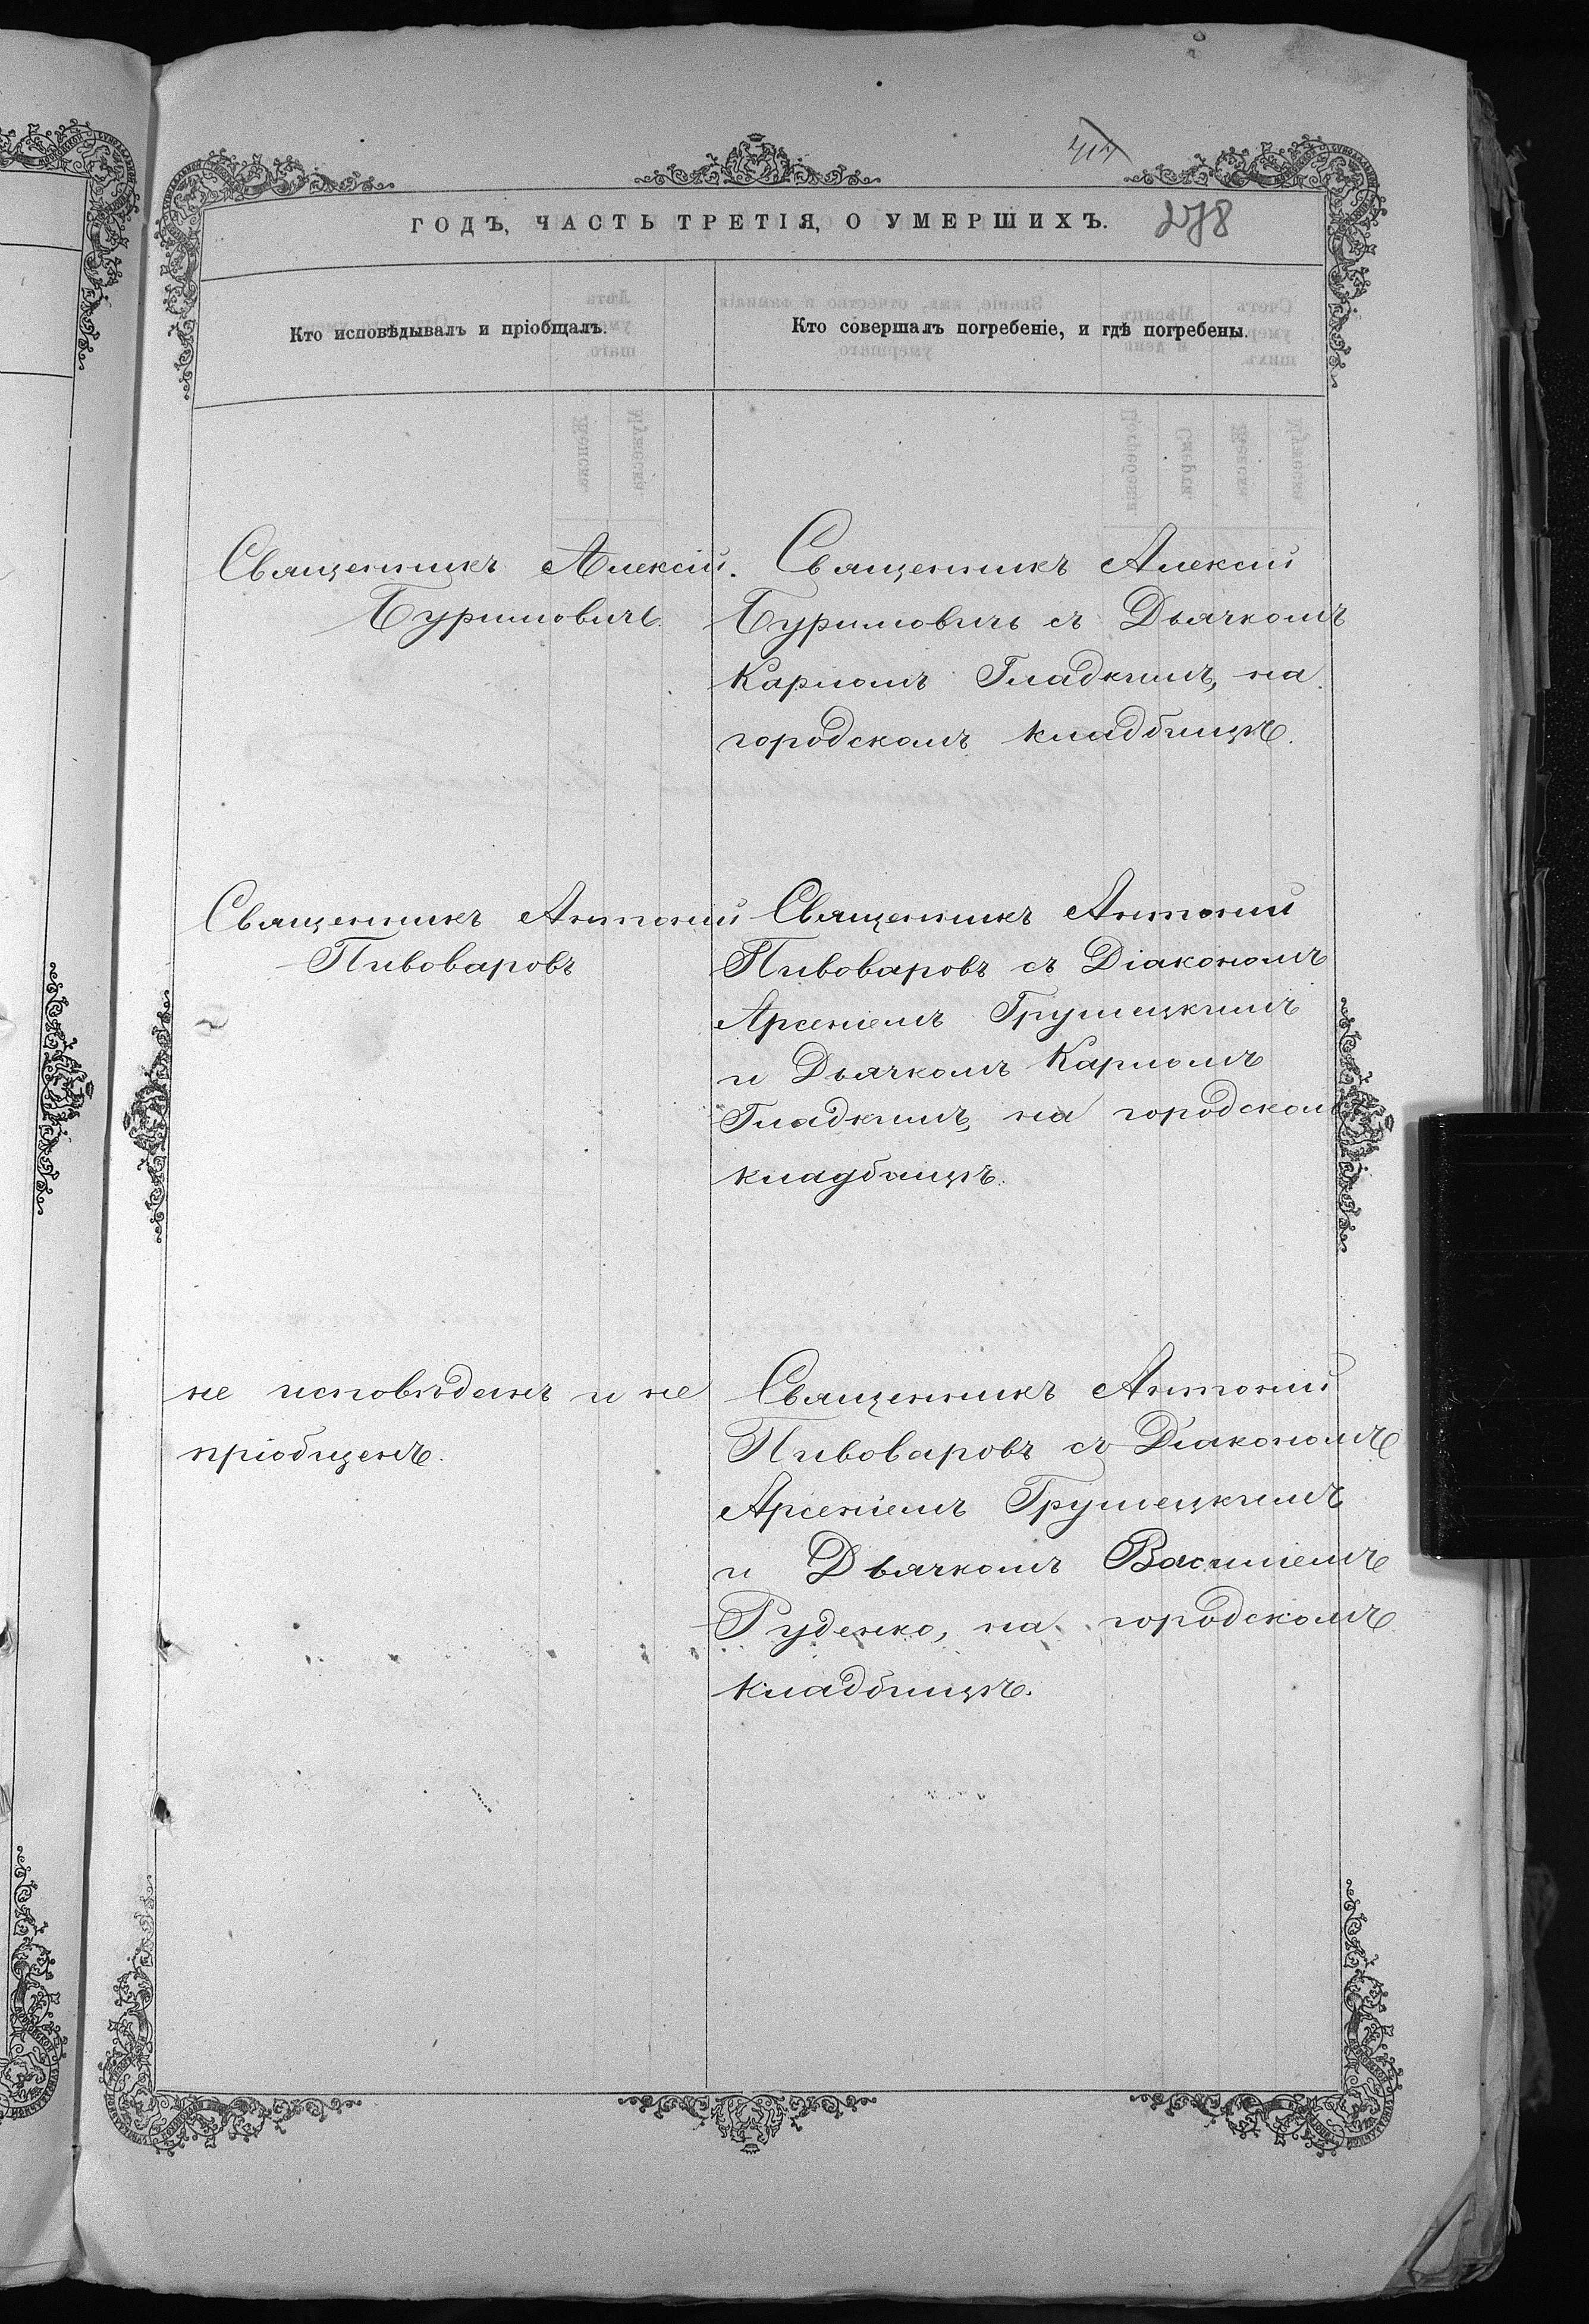 414
ГОДЪ, ЧАСТЬ ТРЕТІЯ, О УМЕРШИХЪ. 278
Кто исповѣдывалъ и пріобщалъ.
Кто совершалъ погребеніе, и гдѣ погребены.
Священникъ Алексій
Буримовичъ.
Священникъ Алексій
Буримовичъ съ Дьячкомъ
Карпомъ Гладкимъ, на
городскомъ кладбищѣ.
Священникъ Антоній
Пивоваровъ
Священникъ Антоній
Пивоваровъ съ Діакономъ
Арсеніемъ Грушецкимъ
и Дьячкомъ Карпомъ
Гладкимъ, на городском
кладбищѣ.
не исповѣданъ и не
пріобщенъ.
Священникъ Антоній
Пивоваровъ съ Діакономъ
Арсеніемъ Грушецкимъ
и Дьячкомъ Василіемъ
Руденко, на городскомъ
кладбищѣ.